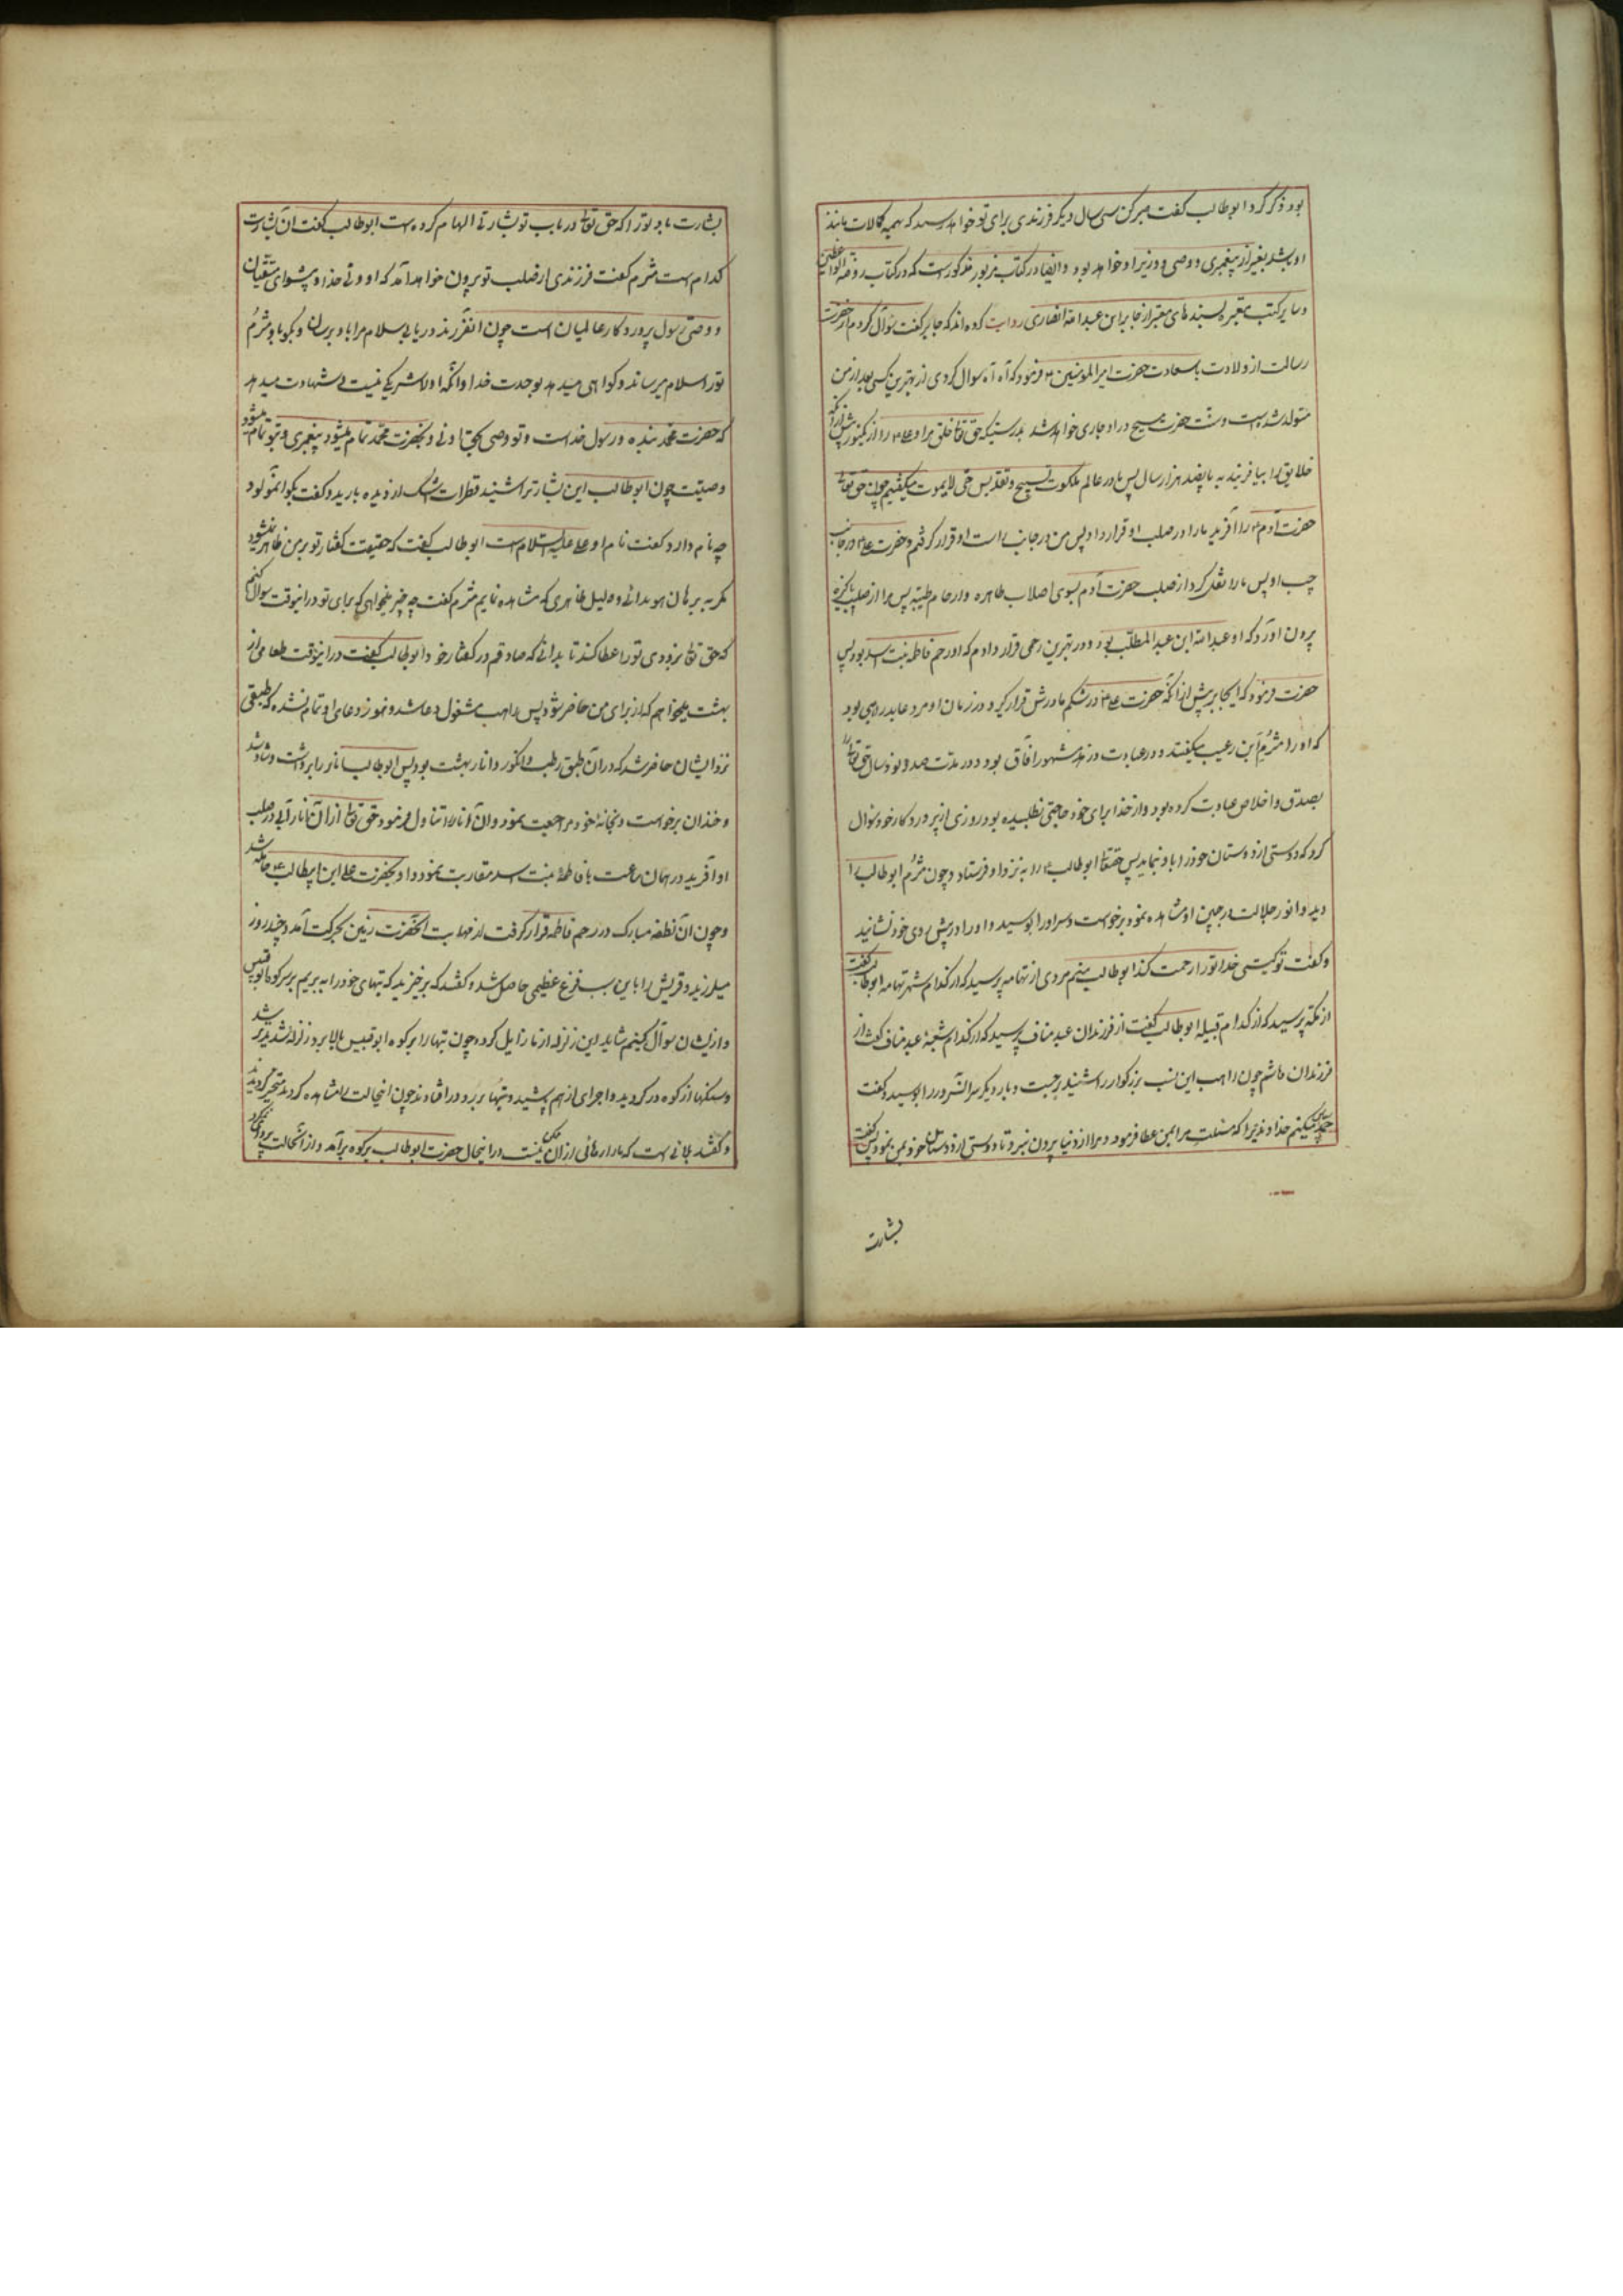 بود ذکر کرد ابوطالب گفت صبر کن سی سال دیگر فرزندی برای تو خواهد رسید که همه کمالات مانند
او باشد بغیر از پیغمبری و وصی و وزیر او خواهد بود و ایضا در کتاب مزبور مذکور است که در کتاب روضة الواعظین
و سایر کتب معتبره بسندهای معتبر از جابر ابن عبدالله انصاری روایت کرده اند که جابر گفت سوال کردم از حضرت
رسالت از ولادت با سعادت حضرت امیرالمومنین ۴ فرمود که آه آه سوال کردی از بهترین کسی بعد از من
متولد شده است و سنت حضرت مسیح در او جاری خواهد شد بدرستیکه حق تعالی خلق مرا و علی ۴ را از یک نور پیش از آنکه
خلایق را بیافریند به پانصد هزار سال پس در عالم ملکوت تسبیح و تقدیس حی لایموت میگفتیم چون حق تعالی
حضرت آدم ۴ را آفرید ما را در صلب او قرار داد پس من در جانب راست او قرار گرفتم و حضرت علی ۴ در جانب
چپ او پس ما را نقل کرد از صلب حضرت آدم بسوی اصلاب طاهره و ارحام طیبه پس مرا از صلب پاکیزه
بیرون آورد که او عبدالله ابن عبدالمطلب بود و در بهترین رحمی قرار دادم که او رحم فاطمه بنت اسد بود پس
حضرت فرمود که ای جابر پیش از آنکه حضرت علی ۴ در شکم مادرش قرار گیرد در زمان او مرد عابد راهبی بود
که او را مثرم ابن رعیب میگفتند و در عبادت و زهد مشهور آفاق بود و در مدت صد و نود سال حق تعالی را
بصدق و اخلاص عبادت کرده بود و از خدا برای خود حاجتی نطلبیده بود روزی از پروردکار خود سوال
کرد که دوستی از دوستان خود را باو بنماید پس حقتعالی ابوطالب ۴ را به نزد او فرستاد و چون مثرم ابوطالب را
دید و انور جلالت در جبین او مشاهده نمود برخواست و سر او را بوسید و او را در پیش روی خود نشانید
و گفت تو کیستی خدا تو را رحمت کند ابوطالب منم مردی از تهامه پرسید که از کدام شهر تهامه ابوطالب گفت
از مکه پرسید که از کدام قبیله ابوطالب گفت از فرزندان عبد مناف پرسید که از کدام شعبه عبد مناف گفت از
فرزندان هاشم چون راهب این نسب بزرکوار را شنید برجست و بار دیگر سر آن سرور را بوسید و گفت
حمد و سپاس میکنم خداوندیرا که مسئلت مرا بمن عطا فرمود و مرا از دنیا بیرون نبرد تا دوستی از دوستان خود بمن نمود پس گفت
بشارت
بشارت باد تو را که حق تعالی در باب تو بشارتی الهام کرده است ابوطالب گفت آن بشارت
کدام است مثرم گفت فرزندی از صلب تو بیرون خواهد آمد که او ولی خدا و پیشوای متقیان
و وصی رسول پروردکار عالمیان است چون آن فرزند دریابی سلام مرا باو برسان و بگو باو مثرم
تو را سلام میرساند و گواهی میدهد بوحدت خدا و آنکه او را شریکی نیست و شهادت میدهد
که حضرت محمد بنده و رسول خداست و تو وصی بحق اوئی و بحضرت محمد تمام میشود پیغمبری و بتو تمام میشود
وصیت چون ابوطالب این بشارت را شنید قطرات اشک از دیده بارید و گفت بگو آن مولود
چه نام دارد گفت نام او علی علیه السلام است ابوطالب گفت که حقیقت گفتار تو بر من ظاهر نمیشود
مگر به برهان هویدائی و دلیل ظاهری که مشاهده نمایم مثرم گفت چه چیز میخواهی که برای تو در اینوقت سوال کنم
که حق تعالی بزودی تو را عطا کند تا بدانی که صادقم در گفتار خود ابوطالب گفت در اینوقت طعامی از
بهشت میخواهم که از برای من حاضر شود پس راهب مشغول دعا شد و هنوز دعای او تمام نشده که طبقی
نزد ایشان حاضر شد که در آن طبق رطب و انگور و انار بهشت بود پس ابوطالب انار را برداشت و شاد شد
و خندان برخواست و بخانه خود مراجعت نمود و آن انار را تناول فرمود حق تعالی از آن انار آبی در صلب
او آفرید در همان ساعت با فاطمه بنت اسد مقاربت نمود و او بحضرت علی ابن ابیطالب ۴ حامله شد
و چون آن نطفه مبارک در رحم فاطمه قرار گرفت از مهابت آنحضرت زمین بحرکت آمد و چند روز
میلرزید و قریش را باین سبب فزع عظیمی حاصل شد و گفتند که برخیزید که بتهای خود را به بریم بر سر کوه ابوقبیس
و از ایشان سوال کنیم شاید این زلزله از ما زایل کردد چون بتها را بر کوه ابوقبیس بالا بردند زلزله شدیدتر شد
و سنگها از کوه در گردید و اجزای از هم پاشید و بتها بر رو در افتادند چون اینحالت را مشاهده کردند متحیر گردیدند
و گفتند بلائی است که ما را رهائی از آن ممکن نیست در اینحال حضرت ابوطالب بر کوه برآمد و از آنحالت پروا نمیکرد